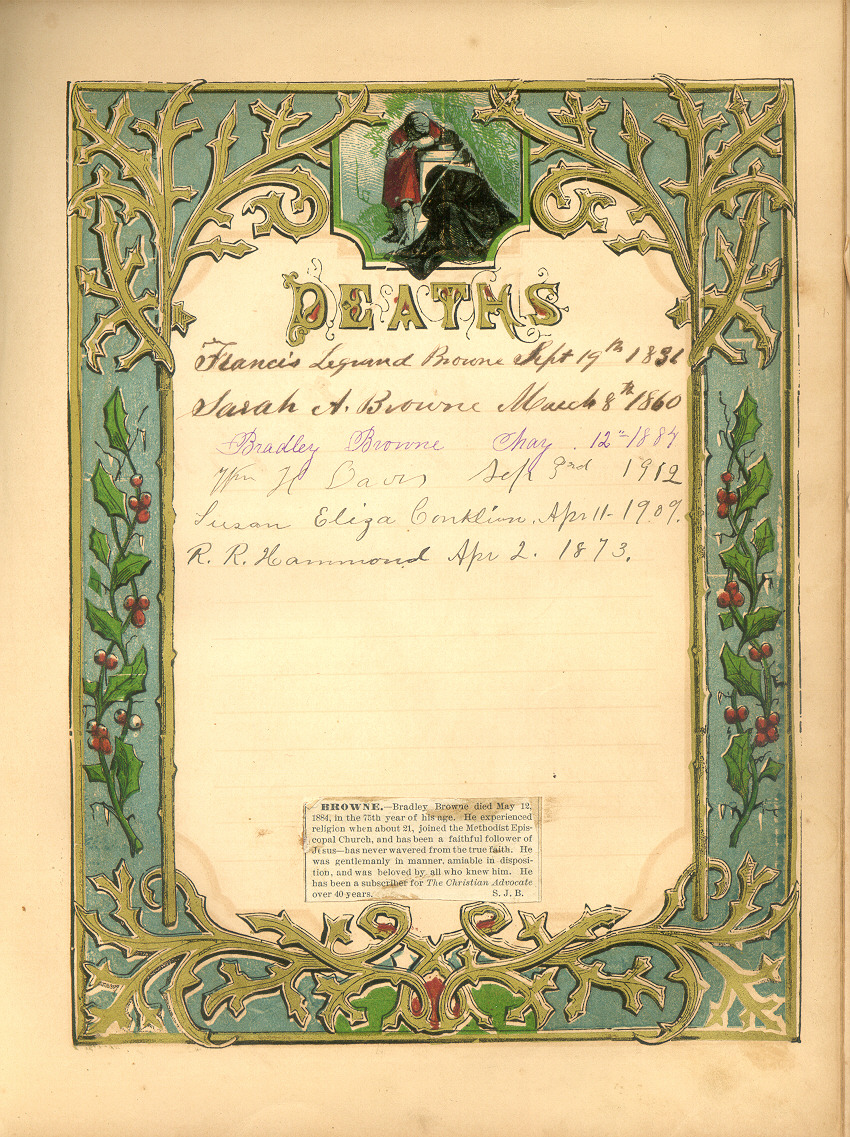 DEATHS
Francis Legrand Browne Sept 19th 1831
Sarah A. Browne March 8th 1860
Bradley Browne May. 12" 1884
Wm H Davis Sep 3rd 1912
Susan Eliza Conklion, Apr 11- 1909.
R. R. Hammond Apr 2. 1873.
BROWNE.—Bradley Browne died May 12,
1884, in the 75th year of his age. He experienced
religion when about 21, joined the Methodist Epis-
copal Church, and has been a faithful follower of
Jesus—has never wavered from the true faith. He
was gentlemanly in manner, amiable in disposi-
tion, and was beloved by all who knew him. He
has been a subscriber for The Christian Advocate
over 40 years. S. J. B.